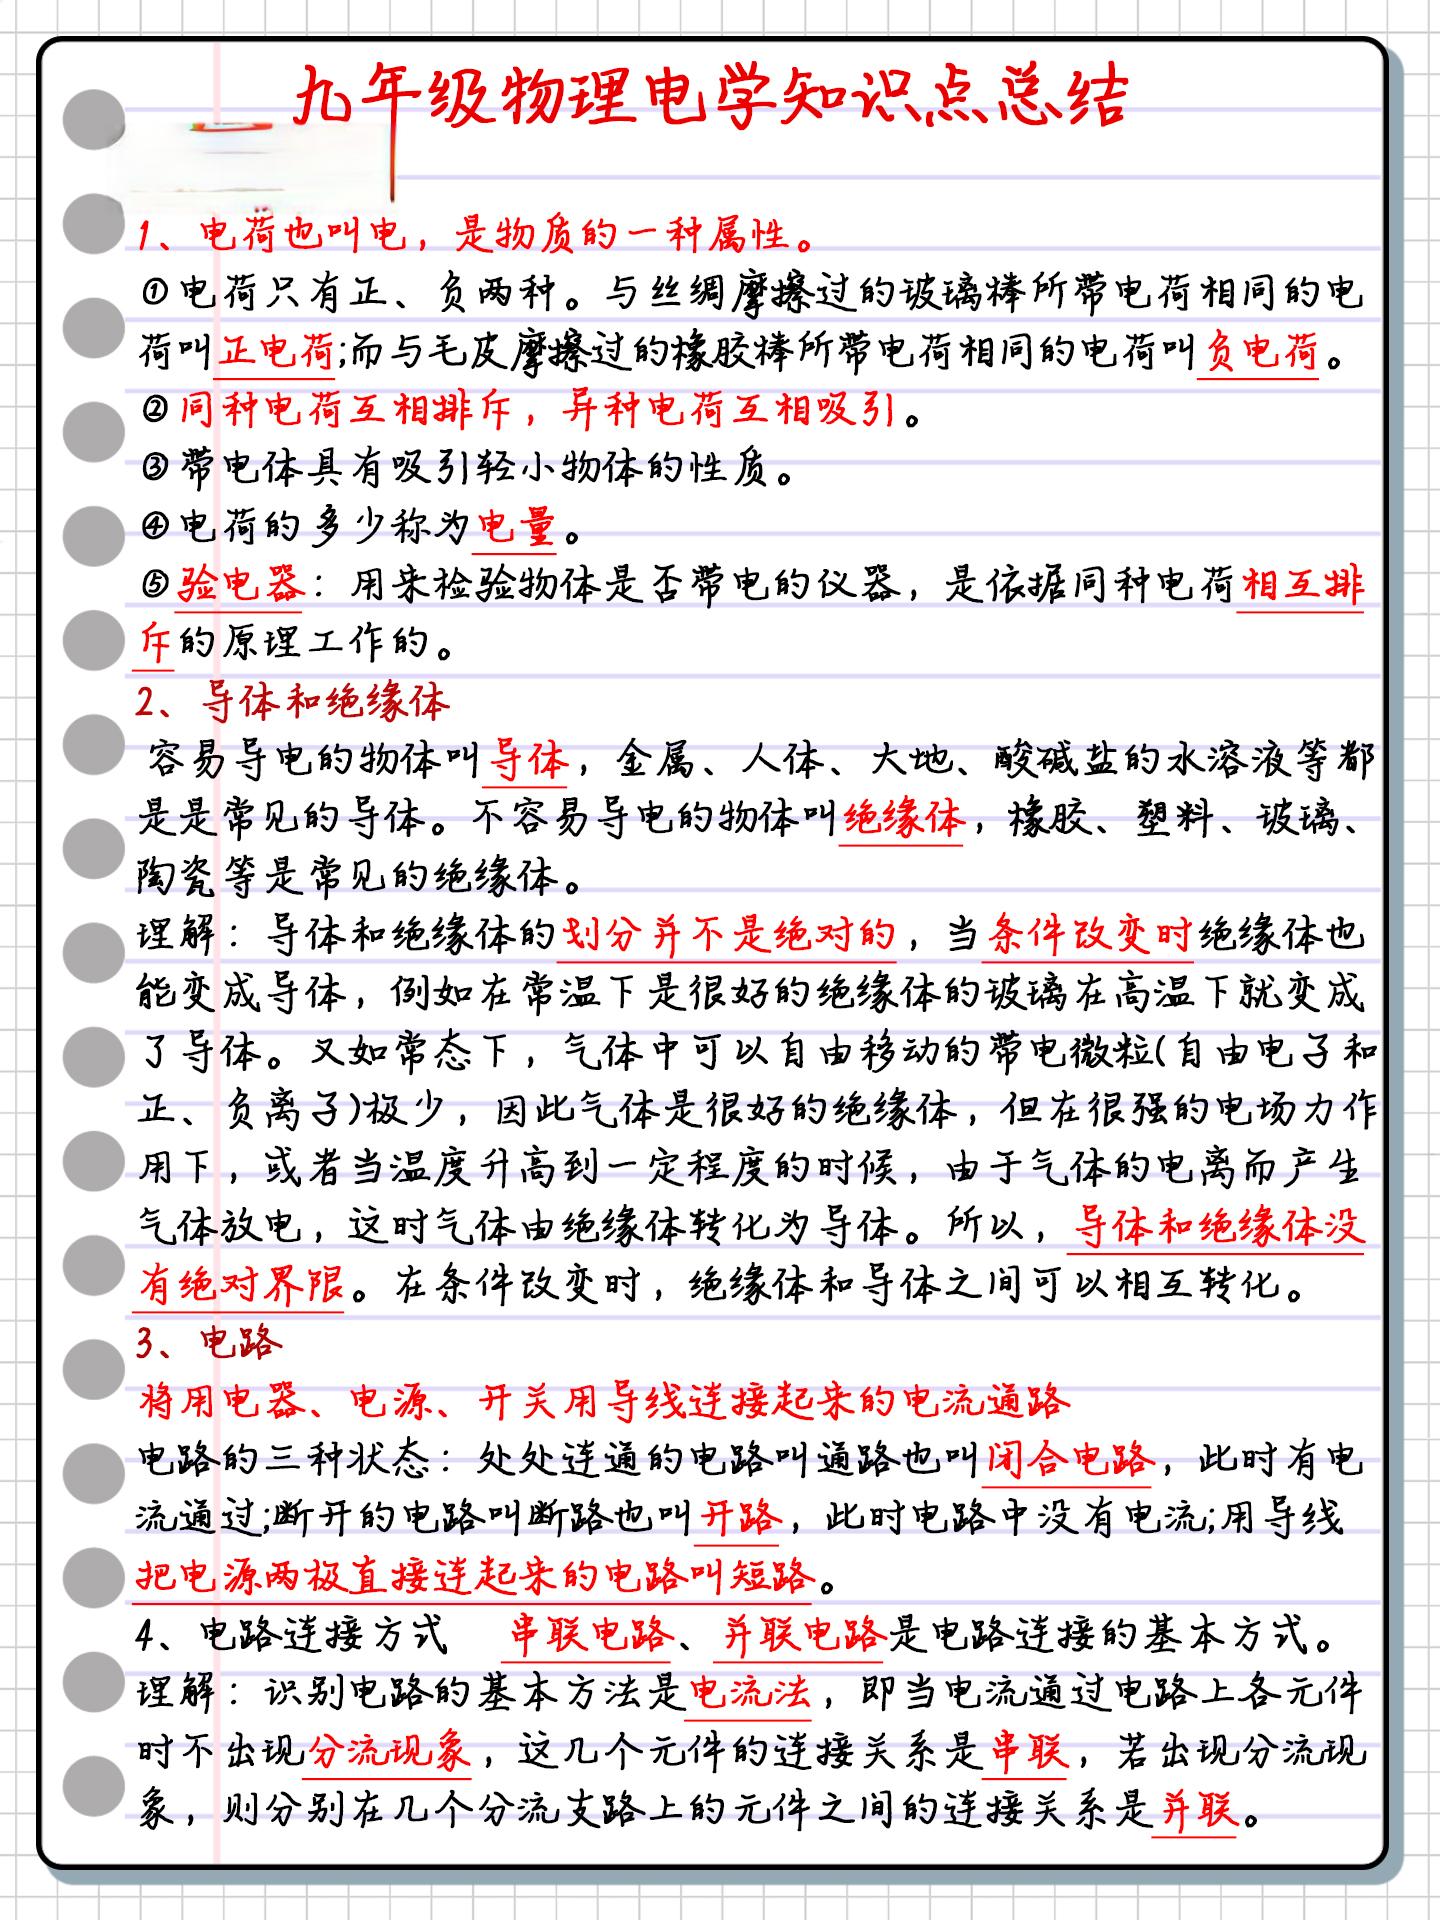 九年级物理电学知识点总结
1、电荷也叫电，是物质的一种属性。
①电荷只有正、负两种。与丝绸摩擦过的玻璃棒所带电荷相同的电
荷叫正电荷;而与毛皮摩擦过的橡胶棒所带电荷相同的电荷叫负电荷。
②同种电荷互相排斥，异种电荷互相吸引。
③带电体具有吸引轻小物体的性质。
④电荷的多少称为电量。
⑤验电器：用来检验物体是否带电的仪器，是依据同种电荷相互排
斥的原理工作的。
2、导体和绝缘体
容易导电的物体叫导体，金属、人体、大地、酸碱盐的水溶液等都
是是常见的导体。不容易导电的物体叫绝缘体，橡胶、塑料、玻璃、
陶瓷等是常见的绝缘体。
理解：导体和绝缘体的划分并不是绝对的，当条件改变时绝缘体也
能变成导体，例如在常温下是很好的绝缘体的玻璃在高温下就变成
了导体。又如常态下，气体中可以自由移动的带电微粒(自由电子和
正、负离子)极少，因此气体是很好的绝缘体，但在很强的电场力作
用下，或者当温度升高到一定程度的时候，由于气体的电离而产生
气体放电，这时气体由绝缘体转化为导体。所以，导体和绝缘体没
有绝对界限。在条件改变时，绝缘体和导体之间可以相互转化。
3、电路
将用电器、电源、开关用导线连接起来的电流通路
电路的三种状态：处处连通的电路叫通路也叫闭合电路，此时有电
流通过;断开的电路叫断路也叫开路，此时电路中没有电流;用导线
把电源两极直接连起来的电路叫短路。
4、电路连接方式 串联电路、并联电路是电路连接的基本方式。
理解：识别电路的基本方法是电流法，即当电流通过电路上各元件
时不出现分流现象，这几个元件的连接关系是串联，若出现分流现
象，则分别在几个分流支路上的元件之间的连接关系是并联。